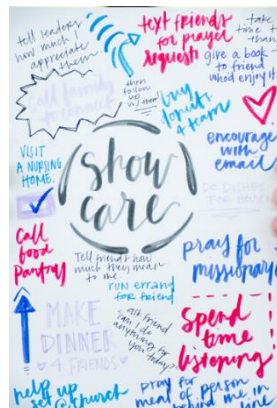 tell leaders
how much I
appreciate
them
text friends
for prayer
requests
take
time
than
give a book
to friend
who'd enjoy it
call family
to connect
then
follow
up
w/ them
buy
donuts
4 team
VISIT
A NURSING
HOME.
show
care
encourage
with
email
DO DISHES
FOR HOUSE
call
food
pantry
Tell friend how
much they mean
to me
pray for
missionary
run errand
for friend
MAKE
DINNER
4 FRIENDS
ask friend
"can I do
anything for
you today?"
Spend
time
listening!
help set up
@ church
pray for
meal of person
behind me in
line